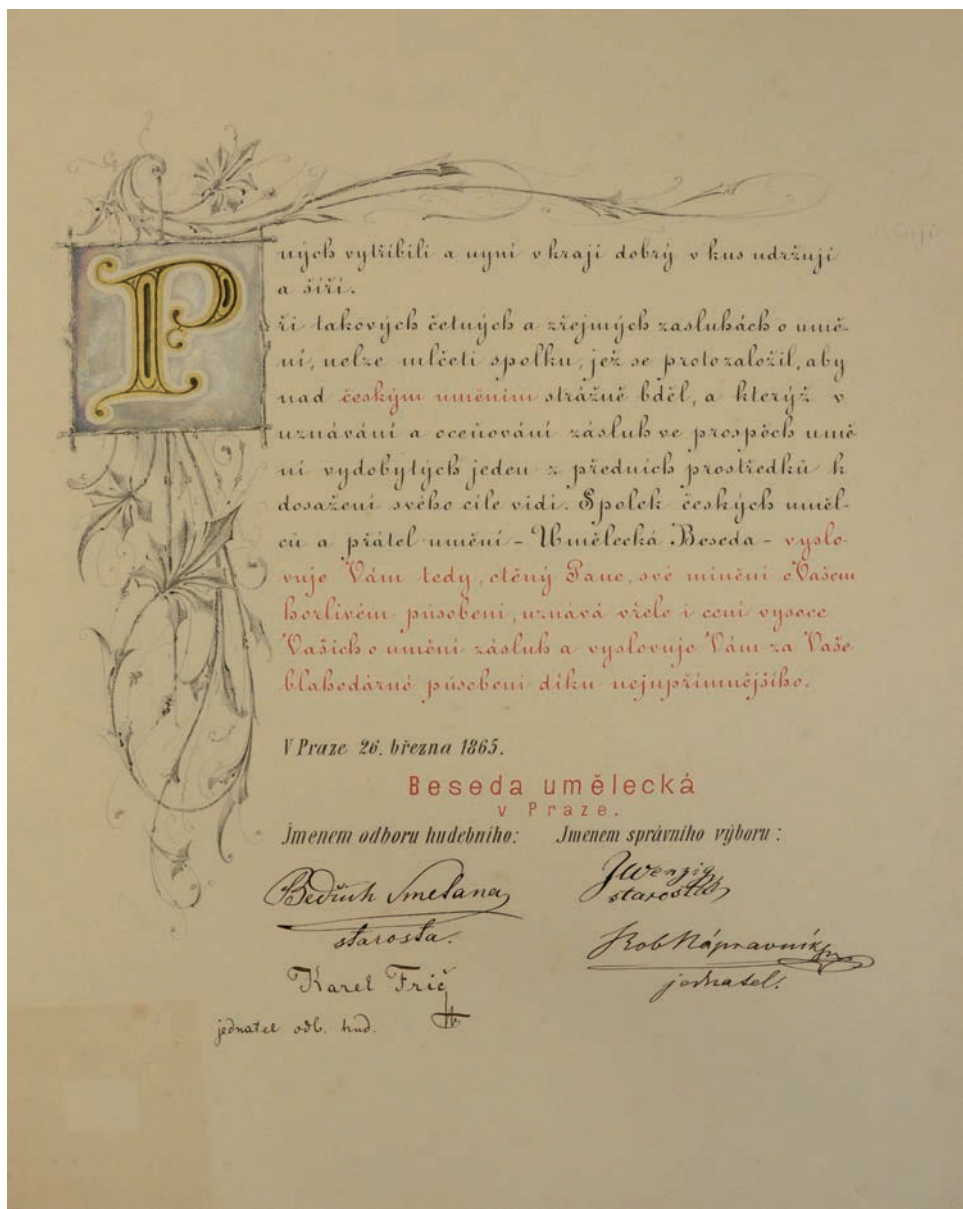 P
ných vytříbili a nyní v kraji dobrý v kus udržují
a šíří.
ři takových četných a zřejmých zasluhách o umě-
ní, nelze mlčeti spolku, jež se protozaložil, aby
nad českým uměním strážně bděl, a kterýž v
uznávání a oceňování zásluh ve prospěch umě
ní vydobytých jeden z předních prostředků k
dosažení svého cíle vidí. Spolek českých uměl-
ců a přátel umění – Umělecká Beseda – vyslo-
vuje Vám tedy, ctěný Pane, své mínění o Vašem
horlivém působení, uznává vřele i cení vysoce
Vašich o umění zásluh a vyslovuje Vám za Vaše
blahodárné působení díku nejupřímnějšího.
V Praze 26. března 1865.
Beseda umělecká
v Praze.
Jmenem odboru hudebního: Jmenem správního výboru:
Bedřich Smetana JWenzig
starosta. starosta
Karel Frič Rob Nápravník
jednatel odb. hud. jednatel.